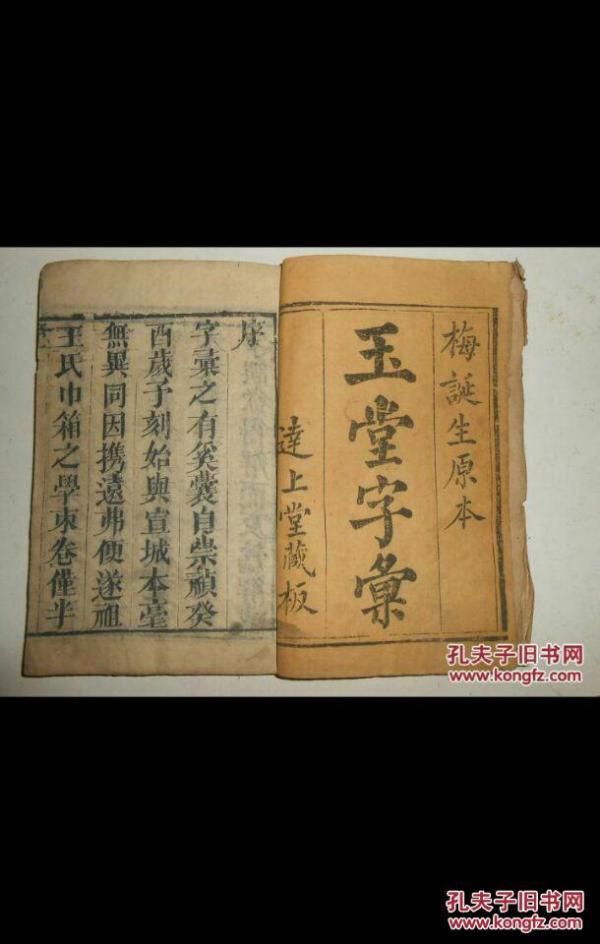 梅誕生原本
玉堂字彙
達上堂藏板
序
字彙之有奚囊自崇禎癸
酉歲予刻始與宣城本毫
無異同因携遠弗便遂祖
王氏巾箱之學束卷僅半
孔夫子旧书网
www.kongfz.com
孔夫子旧书网
www.kongfz.com